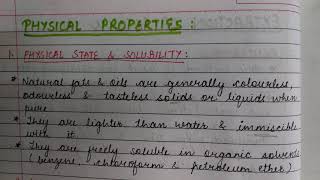 PHYSICAL PROPERTIES :
1. PHYSICAL STATE & SOLUBILITY :
* Natural fats & oils are generally colourless,
odourless & tasteless solids or liquids when
pure
* They are lighter than water & immiscible
with it
* They are freely soluble in organic solvents
( benzine, chloroform & petroleum ether )